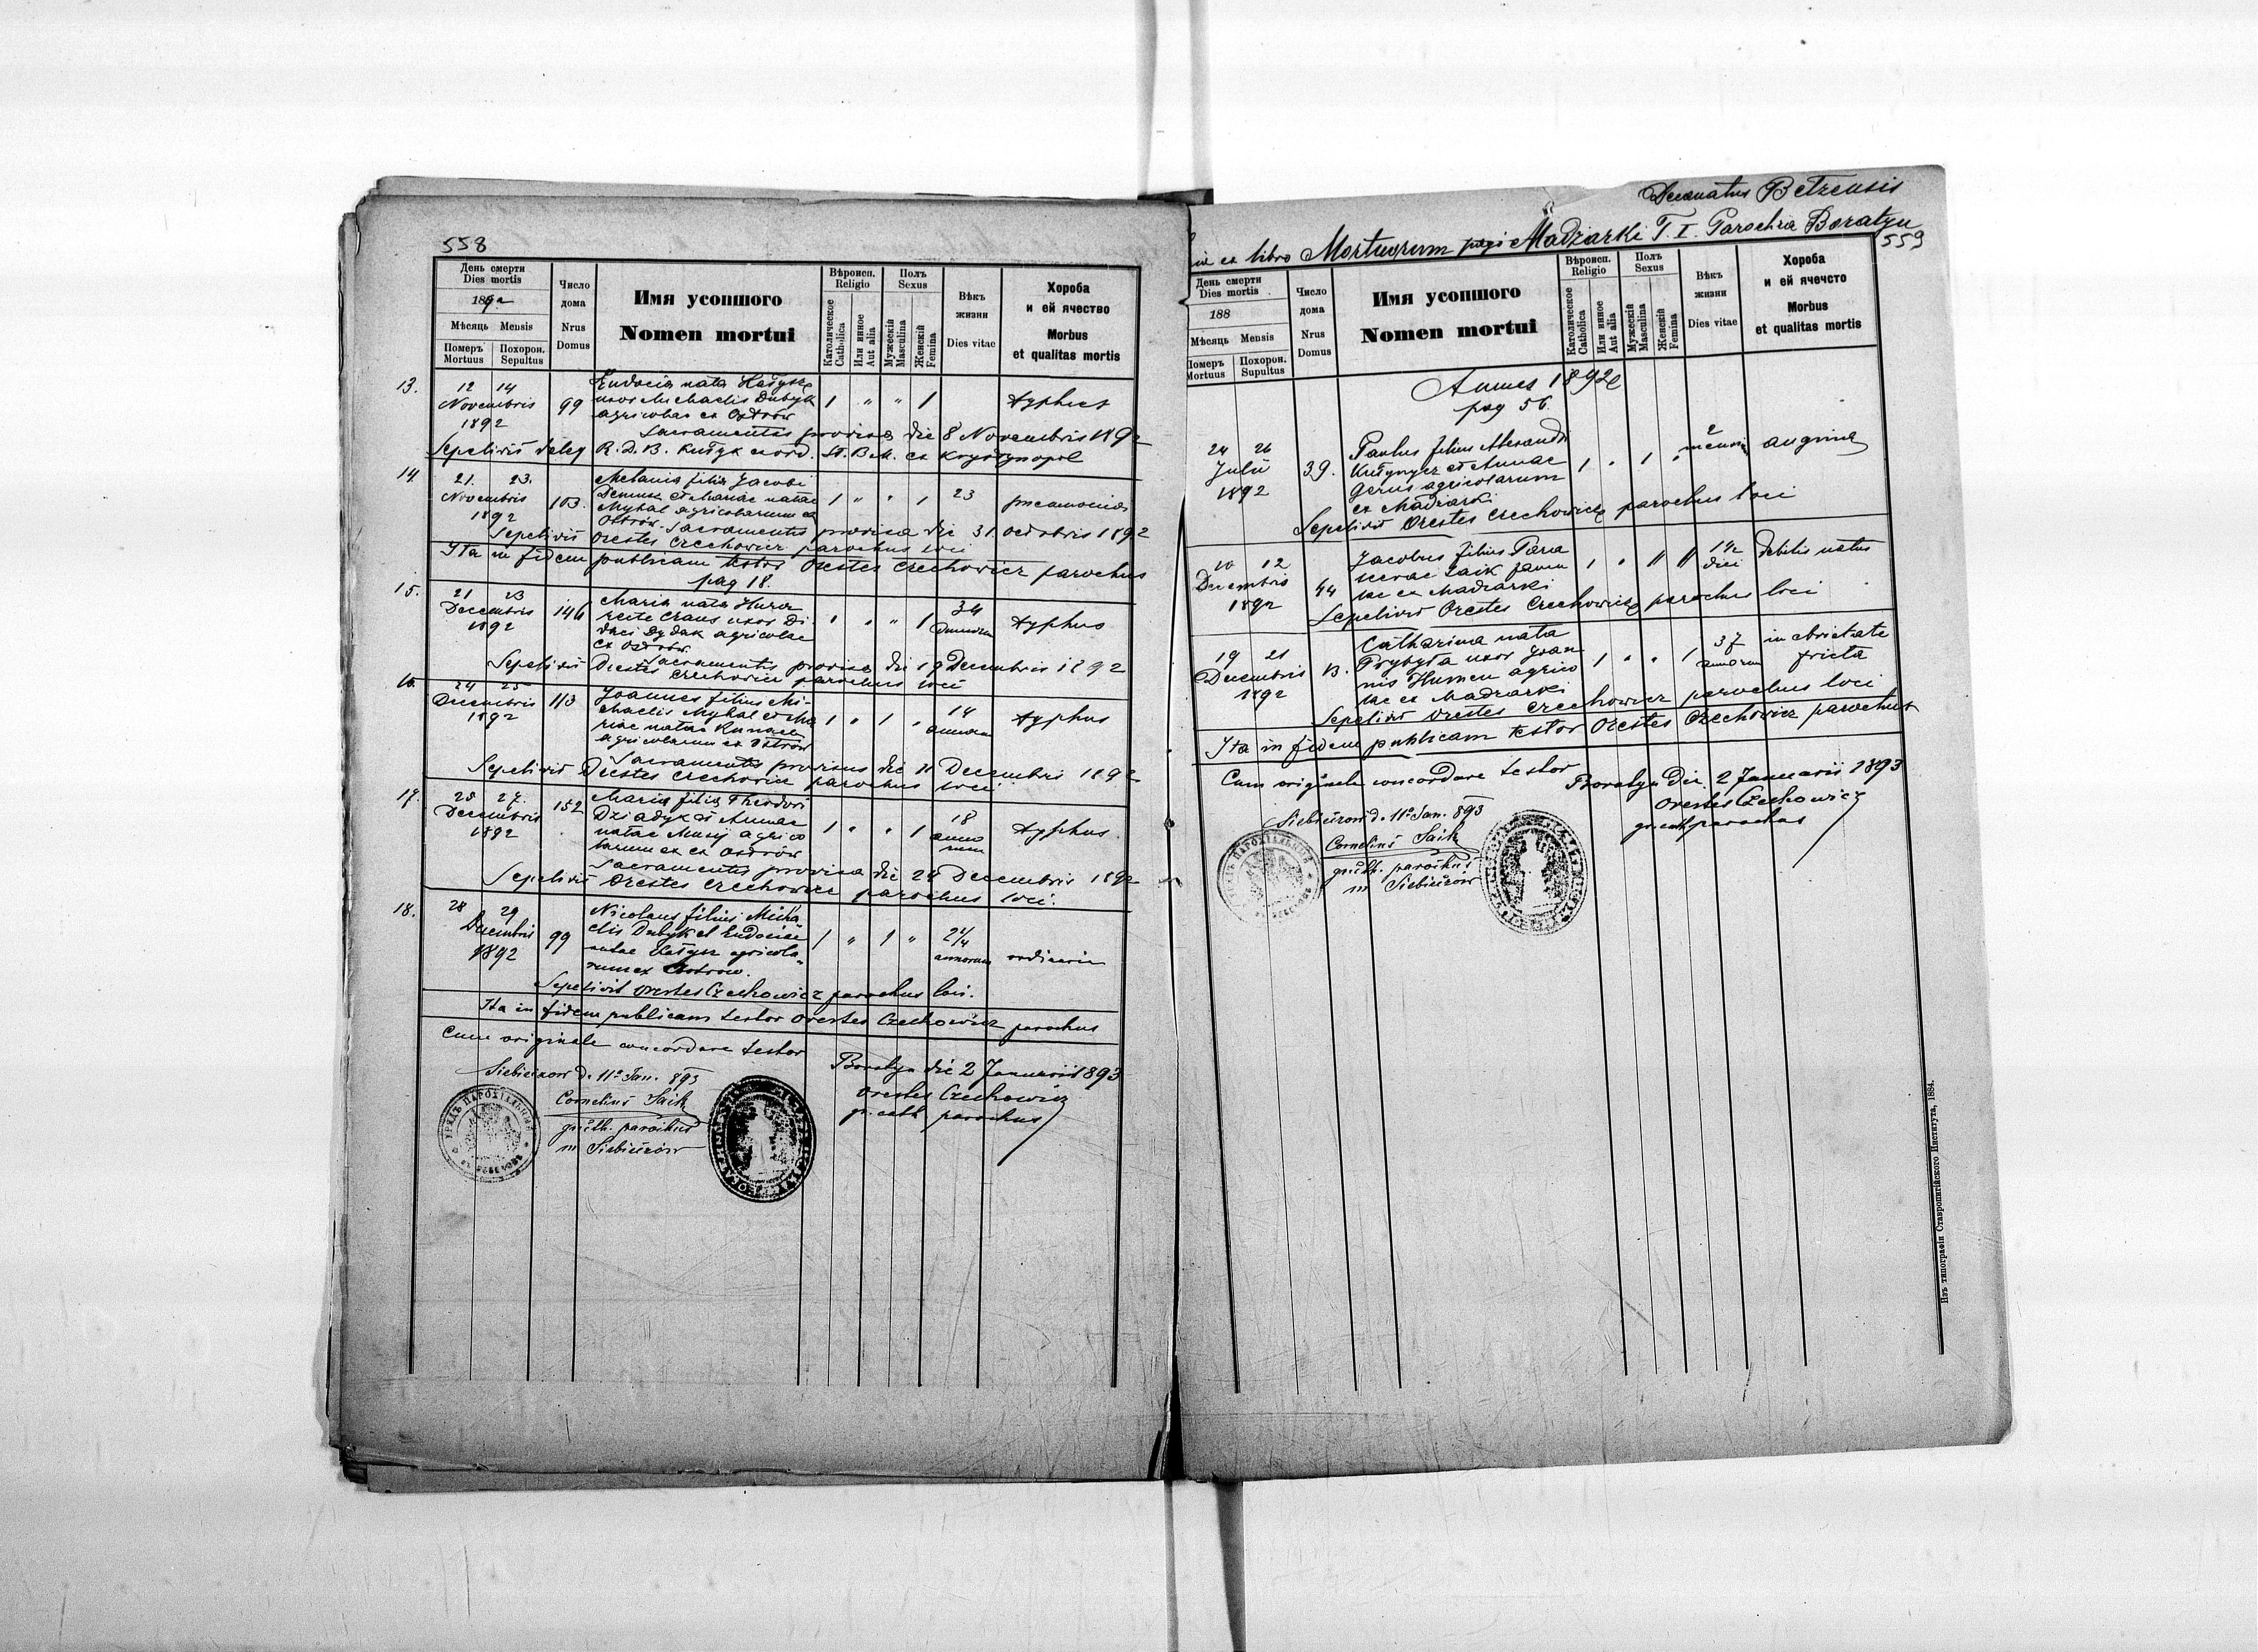 558
День смерти
Dies mortis
1892
Мѣсяць Mensis
Померъ Похорон.
Mortuus Sepultus
Число
дома
Nrus
Domus
Имя усопшого
Nomen mortui
Вѣроисп.
Religio
Католическое
Catholica
Или инное
Aut alia
Полъ
Sexus
Мужескій
Masculina
Женскій
Femina
Вѣкъ
жизни
Dies vitae
Хороба
и ей ячество
Morbus
et qualitas mortis
13.
12 14
Novembris
1892
99
Eudocia nata Hałyk
uxor Michaelis Dubyk
agricolae ex Ostrów
1 " " 1
typhus
Sacramentis provisa die 8 Novembris 1892
Sepelivit deleg R. D. B. Kułyk exord. St. B. M. ex Krystynopol
14
21. 23.
Novembris
1892
103.
Melania filia Jacobi
Demus et Mariae natae
Myhal agricolarum ex
Ostrów
1 " " 1
23
pneamonia
Sacramentis provisa die 31 octobris 1892
Sepelivit Orestes Czechowicz parochus loci
Ita in fidem publicam testor Orestes Czechowicz parochus
pag 18.
15.
21 23
Decembris
1892
146
Maria nata Huzar
recte Craus uxor Di
daci Dydak agricolae
ex Ostrów
34
annorum
typhus
Sacramentis provisa die 19 Decembris 1892
Sepelivit Orestes Czechowicz parochus loci
16.
24 25
Decembris
1892
113
Joannes filius Mi-
chaelis Myhal et Ma
riae natae Kunach
agricolarum ex Ostrów
1 " 1 "
14
annorum
typhus
Sacramentis provisus die Decembris 1892
Sepelivit Orestes Czechowicz parochus loci
17.
25 27.
Decembris
1892
152
Maria filia Theodori
Dziadyk et Annae
natae Musij agrico
larum ex Ostrów
1 " " 1
18
anno
rum
typhus.
Sacramentis provisa die 24 Decembris 1892
Sepelivit Orestes Czechowicz parochus loci.
18.
28 29
Decembris
1892
99
Nicolaus filius Micha
elis Dubyk et Eudociae
natae Hałyk agricola-
rum ex Ostrow.
1 " 1 "
2 1/4
annorum
ordinaria
Sepelivit Orestes Czechowicz parochus loci.
Ita in fidem publicam testor Orestes Czechowicz parochus
Cum originale concordare testor
Siebieczow d. 11º Jan. 893
Cornelius Saik
gr. cth. parochus
in Siebieczów
Boratyn die 2 Januarii 1893
Orestes Czechowicz
gr. cath. parochus
УРЯДЪ ПАРОХІЯЛЬНЫЙ
Decanatus Belzensis
ex libro Mortuorum pagi Madziarki T. I. Parochia Boratyn
559
День смерти
Dies mortis
188
Мѣсяць Mensis
Померъ Похорон.
Mortuus Supultus
Число
дома
Nrus
Domus
Имя усопшого
Nomen mortui
Вѣроисп.
Religio
Католическое
Catholica
Или инное
Aut alia
Полъ
Sexus
Мужескій
Masculina
Женскій
Femina
Вѣкъ
жизни
Dies vitae
Хороба
и ей ячечсто
Morbus
et qualitas mortis
Annus 1892
pag 56.
24 26
Julii
1892
39.
Paulus filius Alexandri
et Annae
Gerus agricolarum
ex Madziarki
1 " 1 "
2
mensium
angina
Sepelivit Orestes Czechowicz parochus loci
10 12
Decembris
1892
44
Jacobus filius Para
scevae Saik famu
lae ex Madziarki
14
diei
debilis natus
Sepelivit Orestes Czechowicz parochus loci
19 21
Decembris
1892
13.
Catharina nata
Prybyła uxor Joan
nis Humen agrico
lae ex Madziarki
1 " " 1
37
annorum
in ebrietate
fricta
Sepelivit Orestes Czechowicz parochus loci
Ita in fidem publicam testor Orestes Czechowicz parochus
Cum originale concordare testor
Siebieczow d. 11º Jan. 893
Cornelius Saik
gr. cth. parochus
in Siebieczow
Boratyn die 2 Januarii 1893
Orestes Czechowicz
gr. cath. parochus
Изъ типографіи Ставропигійского Института, 1884.